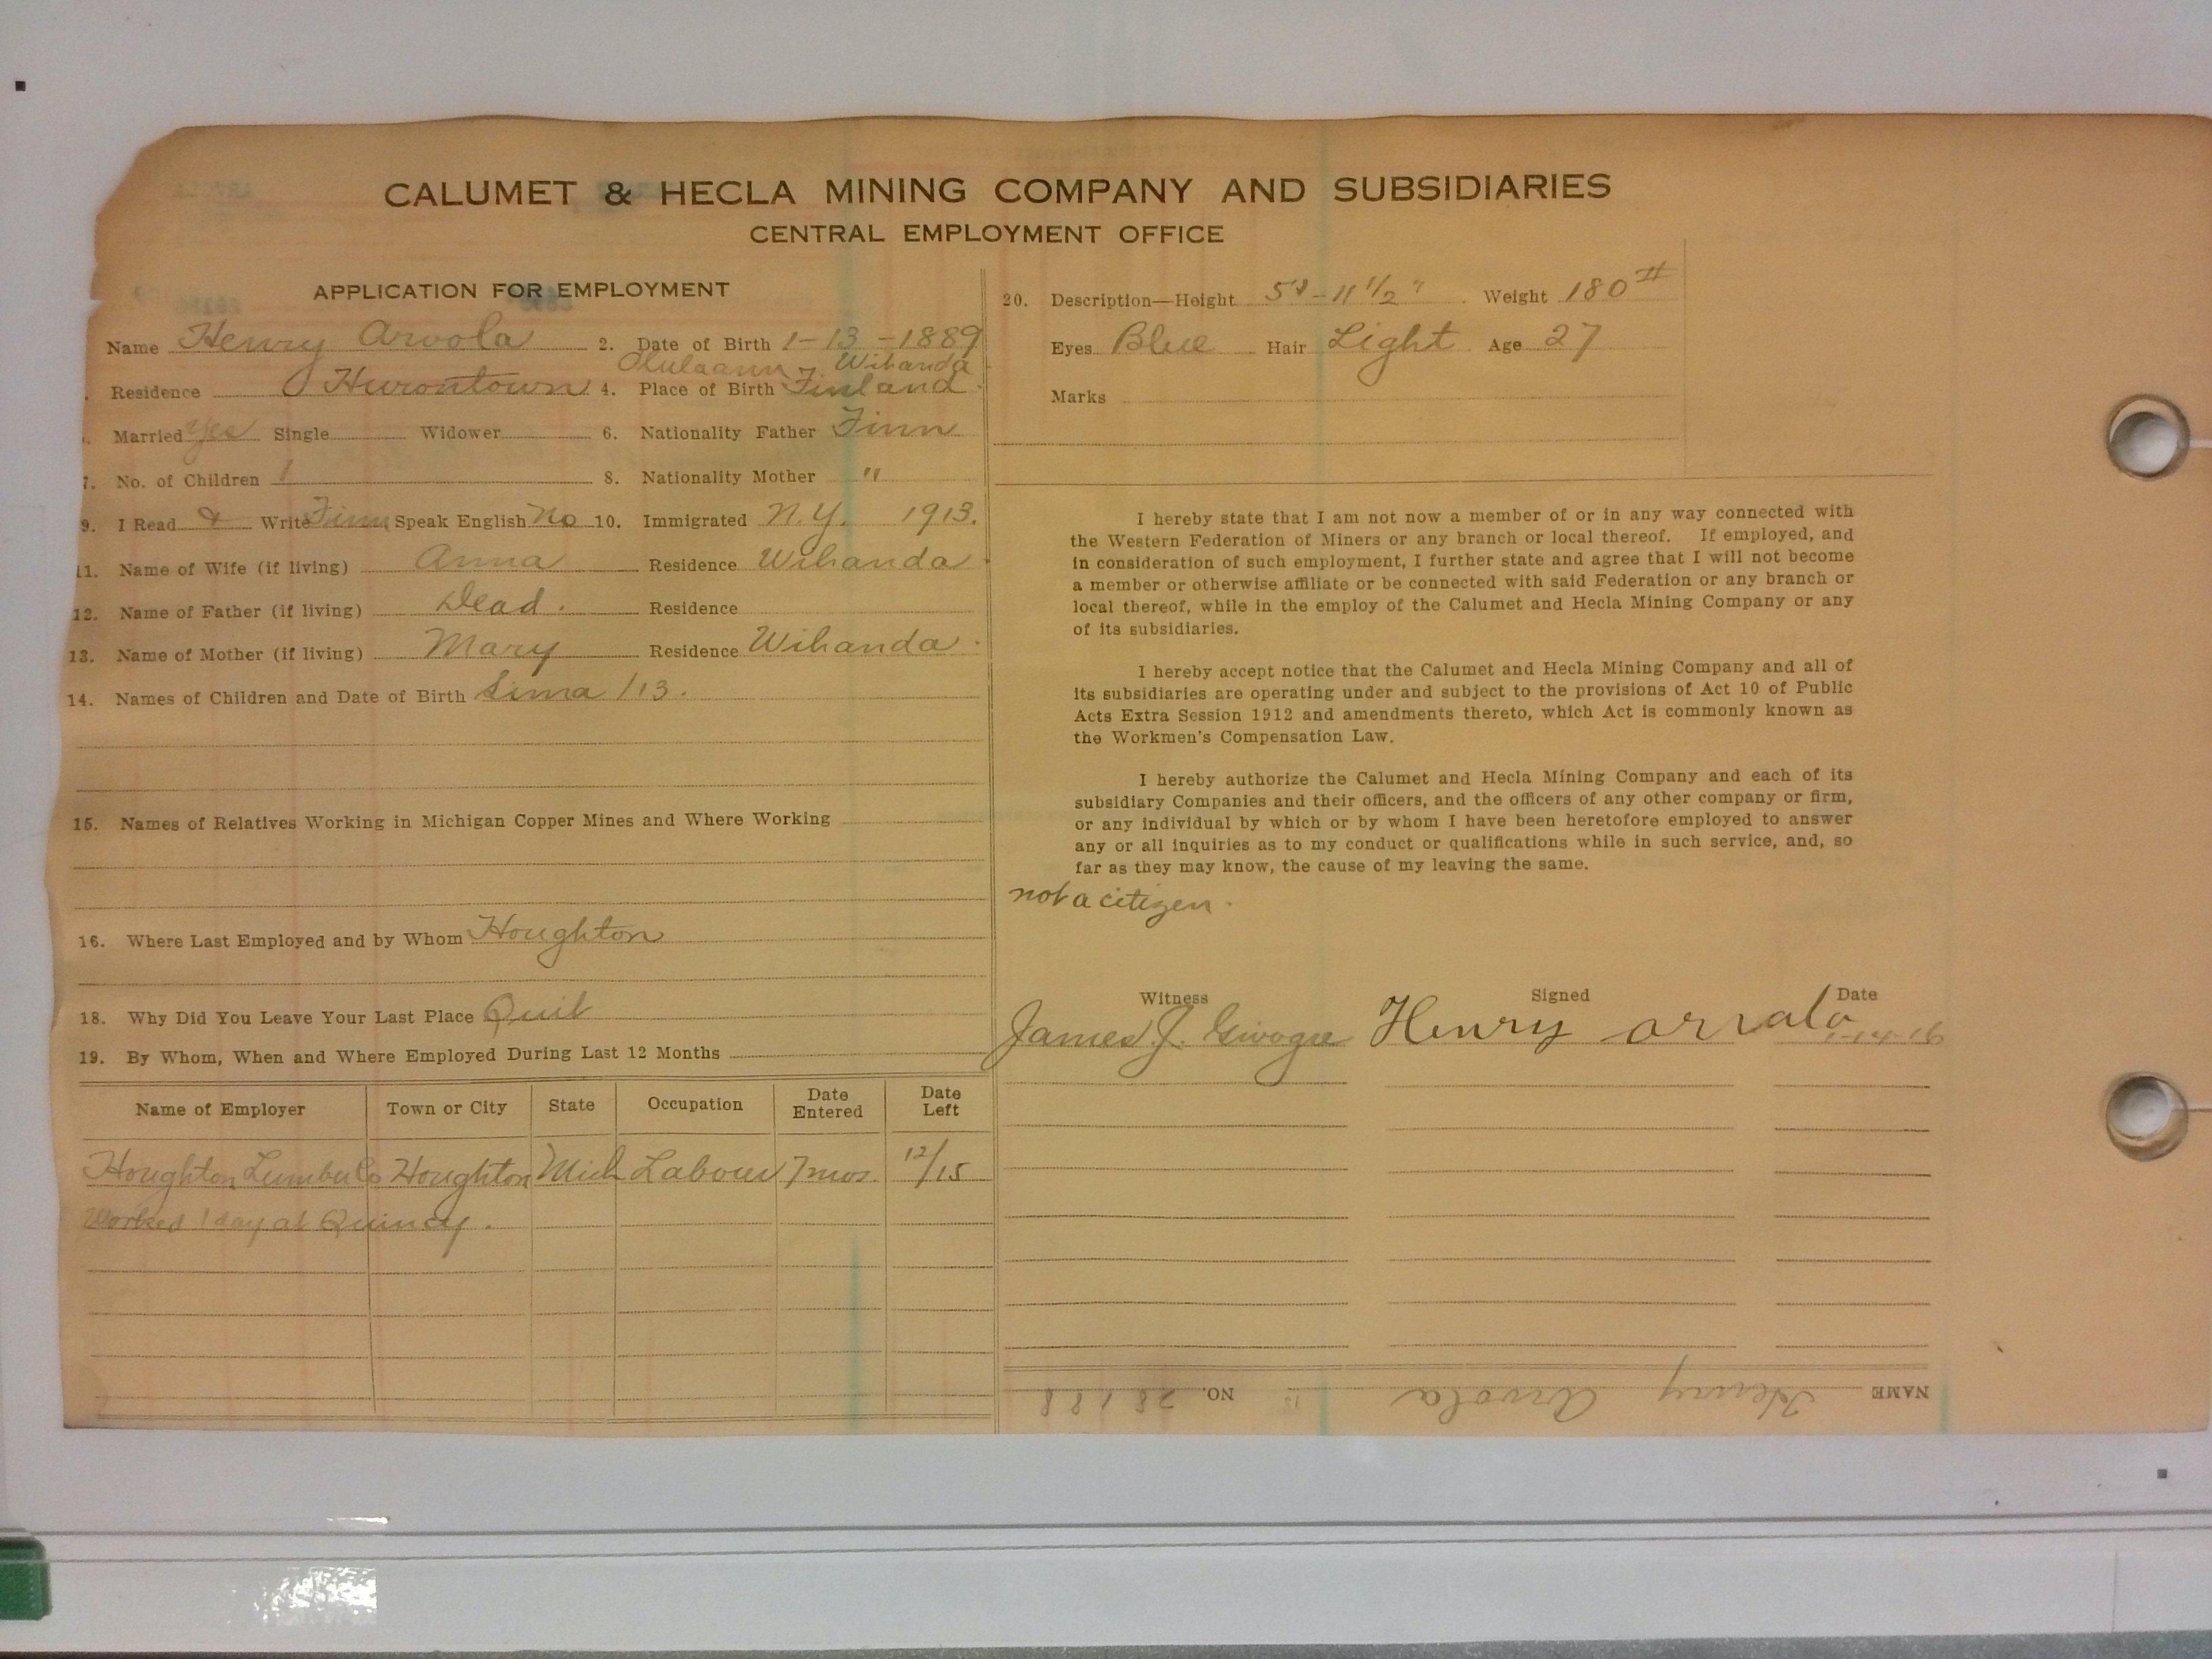 CALUMET & HECLA MINING COMPANY AND SUBSIDIARIES
CENTRAL EMPLOYMENT OFFICE
APPLICATION FOR EMPLOYMENT
Name Henry Arvola 2. Date of Birth 1-13-1889
Wihanda
Residence Hurontown 4. Place of Birth Finland.
Married Yes Single Widower 6. Nationality Father Finn
7. No. of Children 1 8. Nationality Mother "
9. I Read & Write Finn Speak English No 10. Immigrated N.Y. 1913.
11. Name of Wife (if living) Anna Residence Wihanda
12. Name of Father (if living) Dead. Residence
13. Name of Mother (if living) Mary Residence Wihanda.
14. Names of Children and Date of Birth /13.
15. Names of Relatives Working in Michigan Copper Mines and Where Working
16. Where Last Employed and by Whom Houghton
18. Why Did You Leave Your Last Place Quit
19. By Whom, When and Where Employed During Last 12 Months
Name of Employer Town or City State Occupation Date Entered Date Left
Houghton Lumber Co Houghton Mich Labour 7 mos. 12/15
Worked 1 day at Quincy.
20. Description—Height 5'-11 1/2" Weight 180#
Eyes Blue Hair Light Age 27
Marks
I hereby state that I am not now a member of or in any way connected with
the Western Federation of Miners or any branch or local thereof. If employed, and
in consideration of such employment, I further state and agree that I will not become
a member or otherwise affiliate or be connected with said Federation or any branch or
local thereof, while in the employ of the Calumet and Hecla Mining Company or any
of its subsidiaries.
I hereby accept notice that the Calumet and Hecla Mining Company and all of
its subsidiaries are operating under and subject to the provisions of Act 10 of Public
Acts Extra Session 1912 and amendments thereto, which Act is commonly known as
the Workmen's Compensation Law.
I hereby authorize the Calumet and Hecla Mining Company and each of its
subsidiary Companies and their officers, and the officers of any other company or firm,
or any individual by which or by whom I have been heretofore employed to answer
any or all inquiries as to my conduct or qualifications while in such service, and, so
far as they may know, the cause of my leaving the same.
not a citizen.
Witness Signed Date
James J. Henry 1-14-16
NAME Henry Arvola NO. 28188